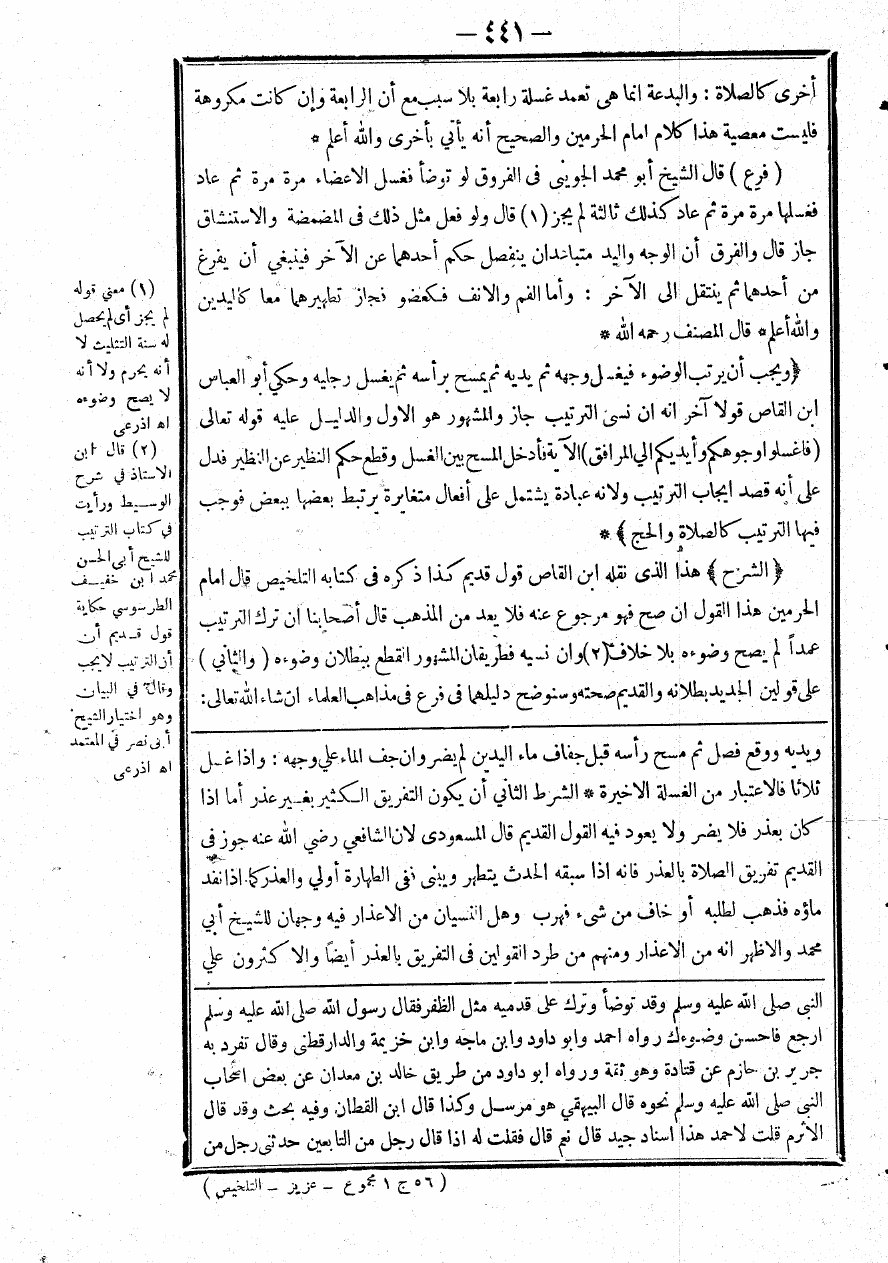 — ٤٤١ —
أخرى كالصلاة : والبدعة انما هى تعمد غسلة رابعة بلا سبب مع أن الرابعة وإن كانت مكروهة
فليست معصية هذا كلام امام الحرمين والصحيح أنه يأتي بأخرى والله أعلم *
( فرع ) قال الشيخ أبو محمد الجوينى فى الفروق لو توضأ فغسل الاعضاء مرة مرة ثم عاد
فغسلها مرة مرة ثم عاد كذلك ثالثة لم يجز (١) قال ولو فعل مثل ذلك فى المضمضة والاستنشاق
جاز قال والفرق أن الوجه واليد متباعدان ينفصل حكم أحدهما عن الآخر فينبغي أن يفرغ
من أحدهما ثم ينتقل الى الآخر : وأما الفم والانف فكعضو فجاز تطهيرهما معا كاليدين
والله أعلم* قال المصنف رحمه الله *
﴿ويجب أن يرتب الوضوء فيغسل وجهه ثم يديه ثم يمسح برأسه ثم يغسل رجليه وحكي أبو العباس
ابن القاص قولا آخر انه ان نسى الترتيب جاز والمشهور هو الاول والدليل عليه قوله تعالى
(فاغسلوا وجوهكم وأيديكم الي المرافق) الآية فأدخل المسح بين الغسل وقطع حكم النظير عن النظير فدل
على أنه قصد ايجاب الترتيب ولانه عبادة يشتمل على أفعال متغايرة يرتبط بعضها ببعض فوجب
فيها الترتيب كالصلاة والحج ﴾ *
﴿ الشرح ﴾ هذا الذى نقله ابن القاص قول قديم كذا ذكره فى كتابه التلخيص قال امام
الحرمين هذا القول ان صح فهو مرجوع عنه فلا يعد من المذهب قال أصحابنا ان ترك الترتيب
عمداً لم يصح وضوءه بلا خلاف (٢) وان نسيه فطريقان المشهور القطع ببطلان وضوءه ( والثاني )
على قولين الجديد بطلانه والقديم صحته وسنوضح دليلهما فى فرع فى مذاهب العلماء ان شاء الله تعالى :
(١) معني قوله
لم يجز أى لم يحصل
له سنة التثليث لا
أنه يحرم ولا أنه
لا يصح وضوءه
اه اذرعى
(٢) قال ابن
الاستاذ في شرح
الوسيط ورأيت
في كتاب الترتيب
للشيخ أبى الحسن
محمد ابن خفيف
الطرسوسي حكاية
قول قديم أن
أن الترتيب لا يجب
وقال في البيان
وهو اختيار الشيخ
أبى نصر في المعتمد
اه اذرعى
ويديه ووقع فصل ثم مسح رأسه قبل جفاف ماء اليدين لم يضر وان جف الماء علي وجهه : واذا غسل
ثلاثا فالاعتبار من الغسلة الاخيرة * الشرط الثاني أن يكون التفريق الكثير بغير عذر أما اذا
كان بعذر فلا يضر ولا يعود فيه القول القديم قال المسعودى لان الشافعي رضي الله عنه جوز فى
القديم تفريق الصلاة بالعذر فانه اذا سبقه الحدث يتطهر ويبنى ففى الطهارة أولي والعذر كما اذا نفد
ماؤه فذهب لطلبه أو خاف من شىء فهرب وهل النسيان من الاعذار فيه وجهان للشيخ أبي
محمد والاظهر انه من الاعذار ومنهم من طرد القولين فى التفريق بالعذر أيضاً والاكثرون علي
النبى صلى الله عليه وسلم وقد توضأ وترك على قدميه مثل الظفر فقال رسول الله صلى الله عليه وسلم
ارجع فاحسن وضوءك رواه احمد وابو داود وابن ماجه وابن خزيمة والدارقطنى وقال تفرد به
جرير بن حازم عن قتادة وهو ثقة ورواه ابو داود من طريق خالد بن معدان عن بعض اصحاب
النبى صلى الله عليه وسلم نحوه قال البيهقي هو مرسل وكذا قال ابن القطان وفيه بحث وقد قال
الأثرم قلت لاحمد هذا اسناد جيد قال نعم قال فقلت له اذا قال رجل من التابعين حدثنى رجل من
( ٥٦ ج ١ مجموع – عزيز – التلخيص )